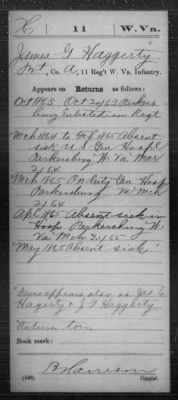 H | 11 | W.Va.
James G Haggerty
Pvt, Co. A, 11 Reg't W. Va. Infantry.
Appears on Returns as follows:
Oct 1863 Oct 24/63 Parkers
burg Enlisted in Regt
Mch 1864 to Feb 1865 Absent
sick US Gen Hospl
Parkersburg W. Va Mar
2/64
Mch 1865 On Duty Gen Hosp
Parkersburg Va Mch
2/64
Apl 1865 Absent sick in
Hosp Parkersburg W.
Va Mch 2/65
May 1865 Absent sick
Name appears also as Jas G
Hagerty & J G Haggherty
Return torn
Book mark:
(546) Copyist.